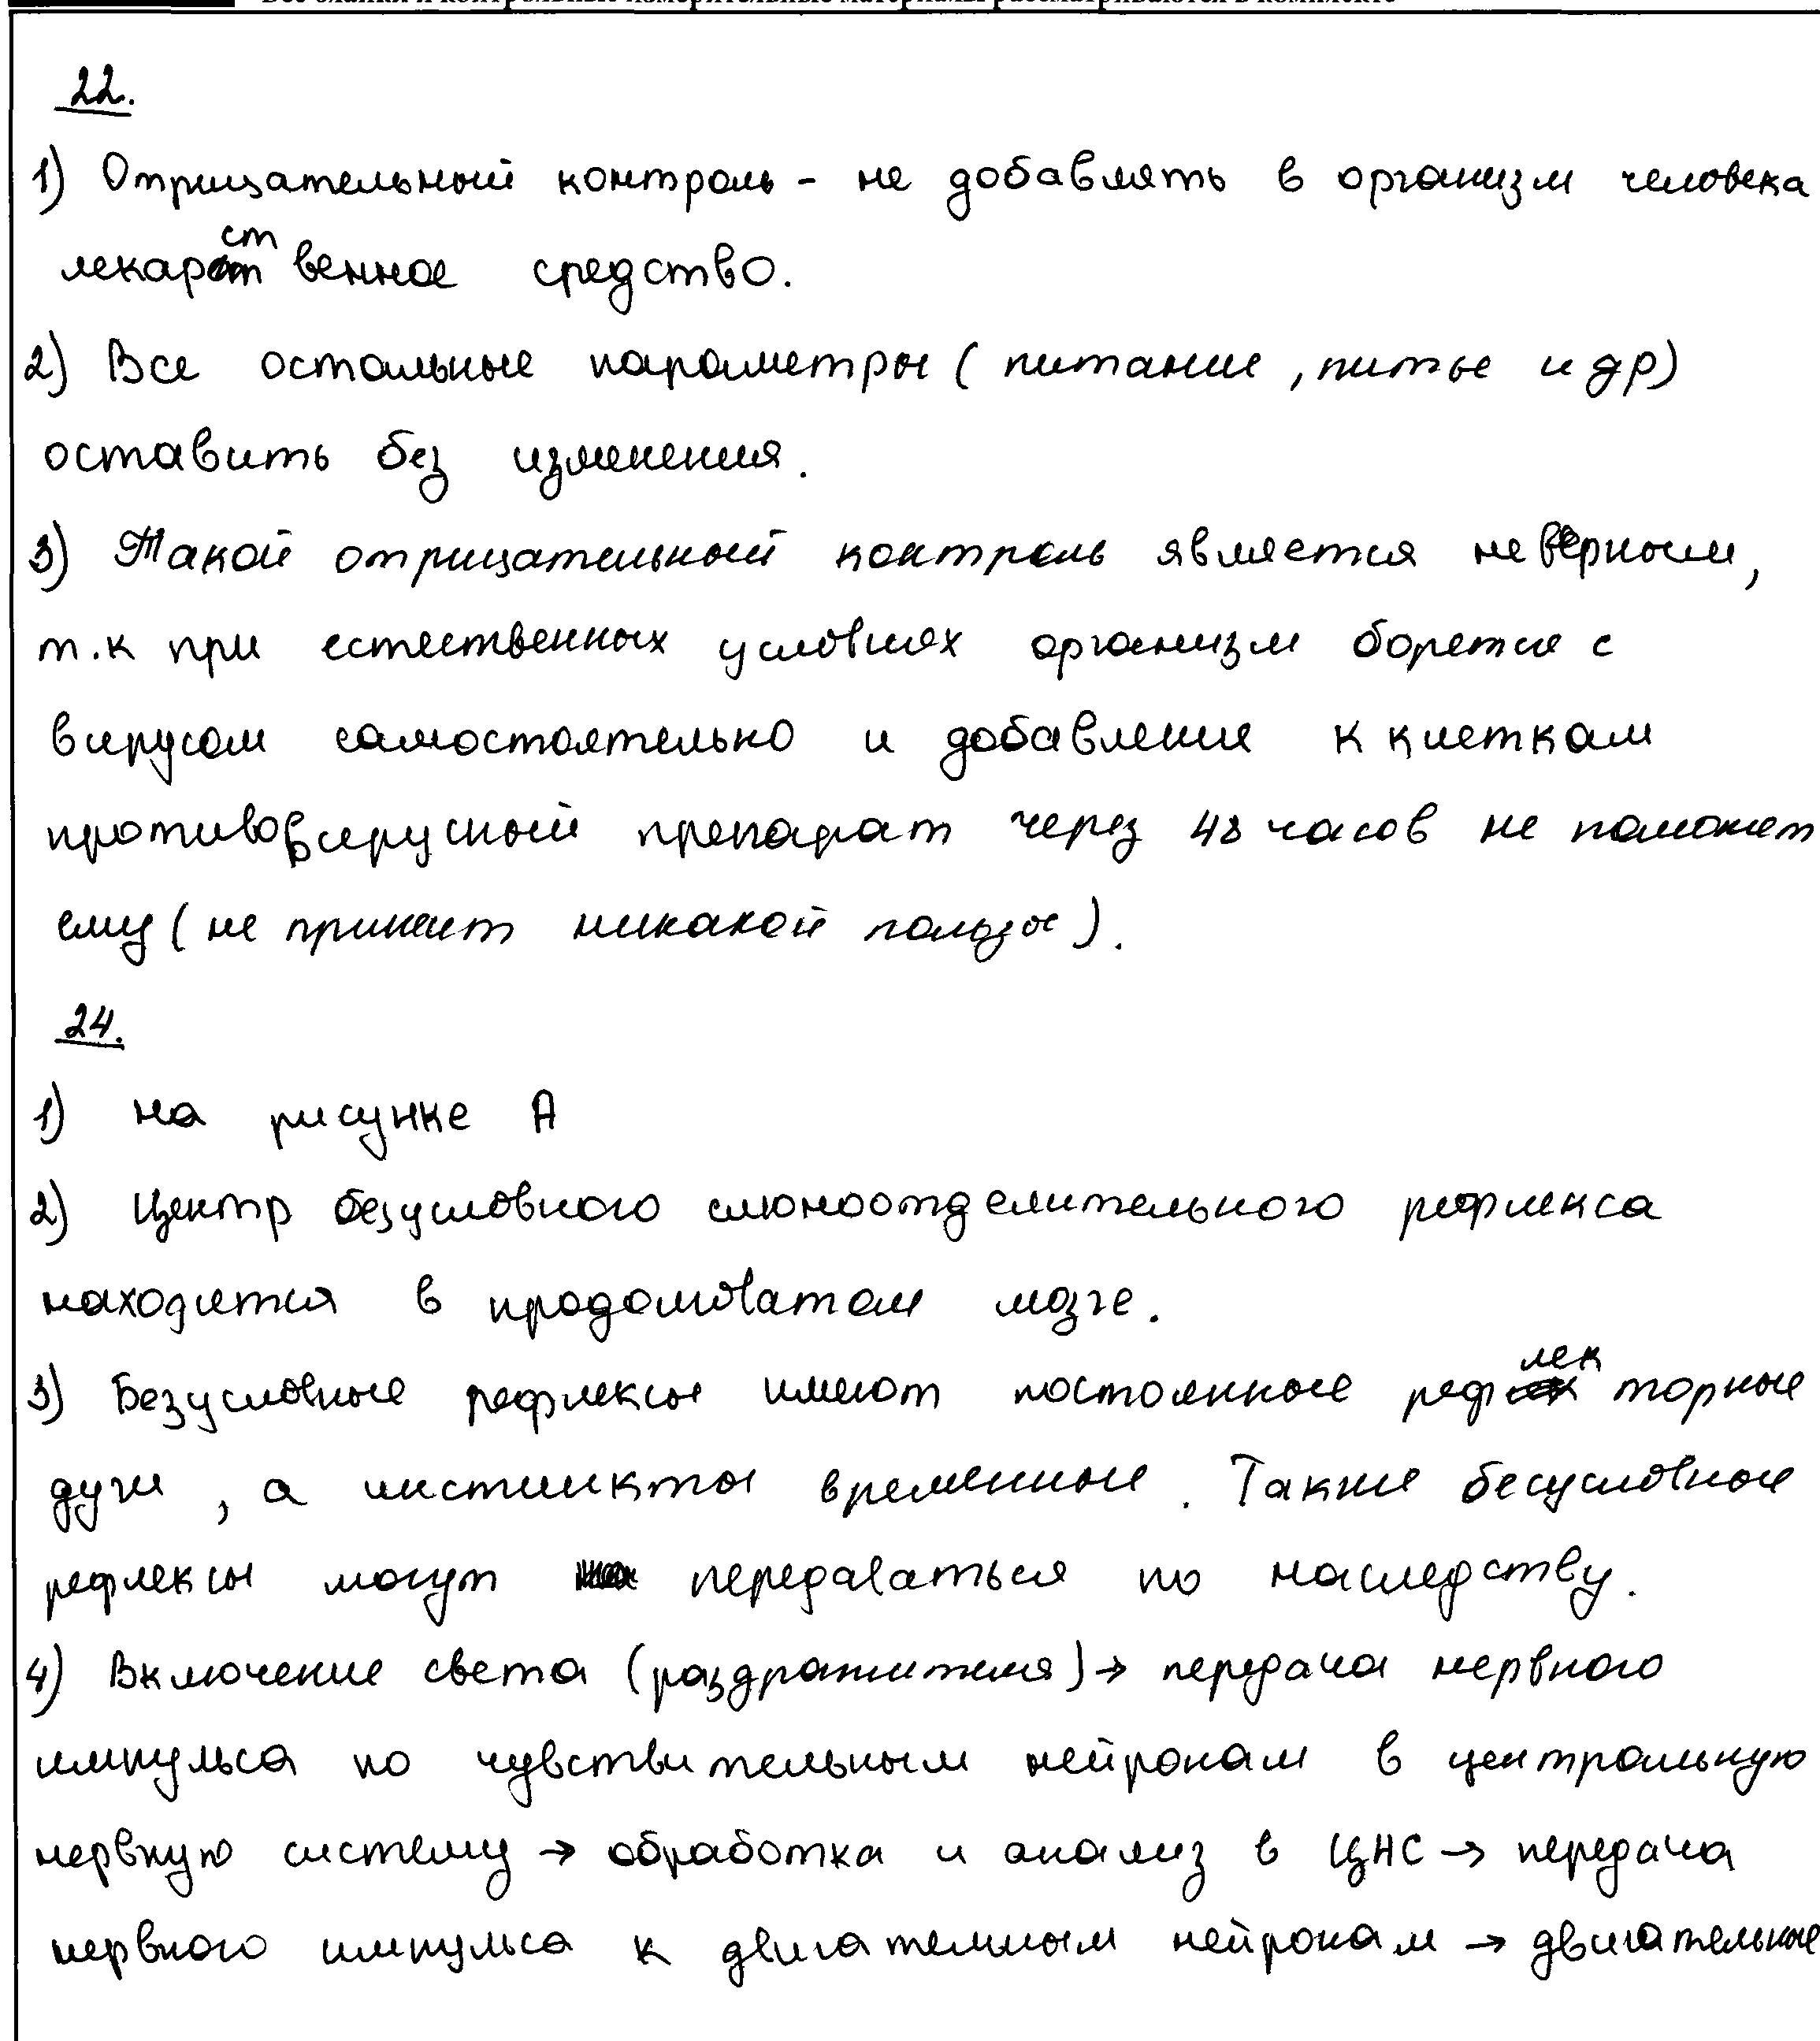 Все бланки и контрольные измерительные материалы рассматриваются в комплекте
22.
1) Отрицательный контроль - не добавлять в организм человека
лекарственное средство.
2) Все остальные параметры ( питание , питье и др)
оставить без изменения.
3) Такой отрицательный контроль является неверным,
т.к при естественных условиях организм борется с
вирусом самостоятельно и добавление к клеткам
противовирусный препарат через 48 часов не поможет
ему ( не принесет никакой пользы ).
24.
1) на рисунке А
2) Центр безусловного слюноотделительного рефлекса
находится в продолговатом мозге.
3) Безусловные рефлексы имеют постоянные рефлекторные
дуги , а инстинкты временные . Также бесусловные
рефлексы могут передаваться по наследству.
4) Включение света (раздражителя) → передача нервного
импульса по чувствительным нейронам в центральную
нервную систему → обработка и анализ в ЦНС → передача
нервного импульса к двигательным нейронам → двигательные